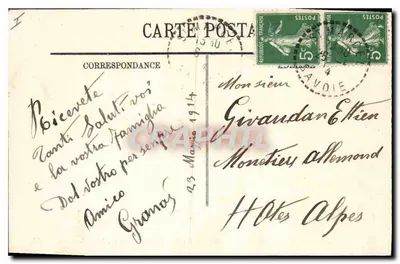 CARTE POSTA
CORRESPONDANCE
Ricevete
tanti Saluti voi
e la vostra famiglia
Dal vostro per sempre
Amico
Granas
23 Maggio 1914
Monsieur
Giraudan Ettien
Monetiers Allemond
Htes Alpes
POSTES
5
POSTES
5
SAVOIE